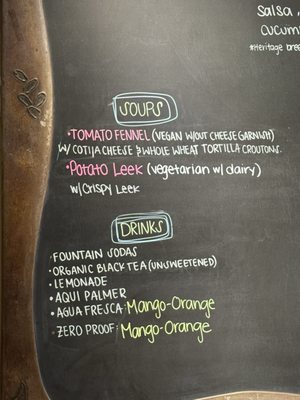 Salsa,
cucum
*Heritage bree
SOUPS
• TOMATO FENNEL (VEGAN W/OUT CHEESE GARNISH)
W/ COTIJA CHEESE & WHOLE WHEAT TORTILLA CROUTONS.
• Potato Leek (vegetarian w/ dairy)
w/ Crispy Leek
DRINKS
• FOUNTAIN SODAS
• ORGANIC BLACK TEA (UNSWEETENED)
• LEMONADE
• AQUI PALMER
• AGUA FRESCA: Mango-Orange
• ZERO PROOF: Mango-Orange